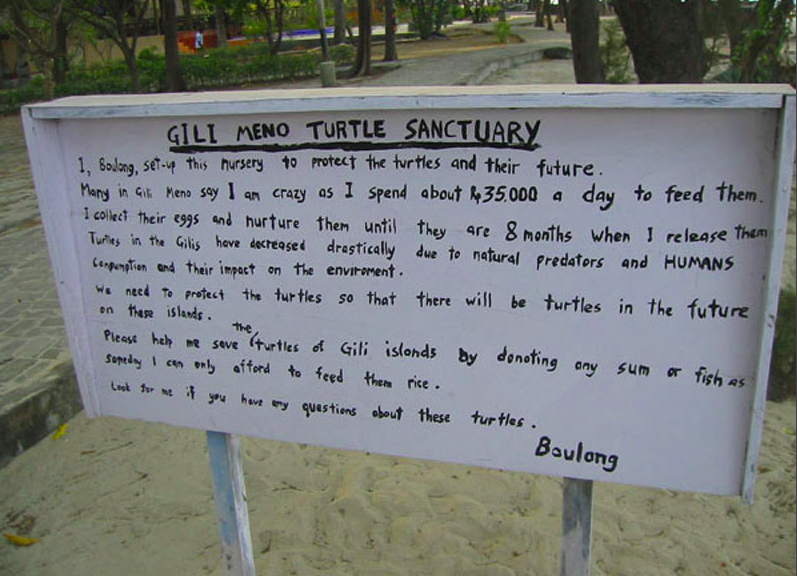 GILI MENO TURTLE SANCTUARY
I, Boulong, set-up this nursery to protect the turtles and their future.
Many in Gili Meno say I am crazy as I spend about Rp35.000 a day to feed them.
I collect their eggs and nurture them until they are 8 months when I release them
Turtles in the Gilis have decreased drastically due to natural predators and HUMANS
consumption and their impact on the enviroment.
We need to protect the turtles so that there will be turtles in the future
on these islands.
Please help me save the turtles of Gili islands by donating any sum or fish as
someday I can only afford to feed them rice.
Look for me if you have any questions about these turtles.
Boulong